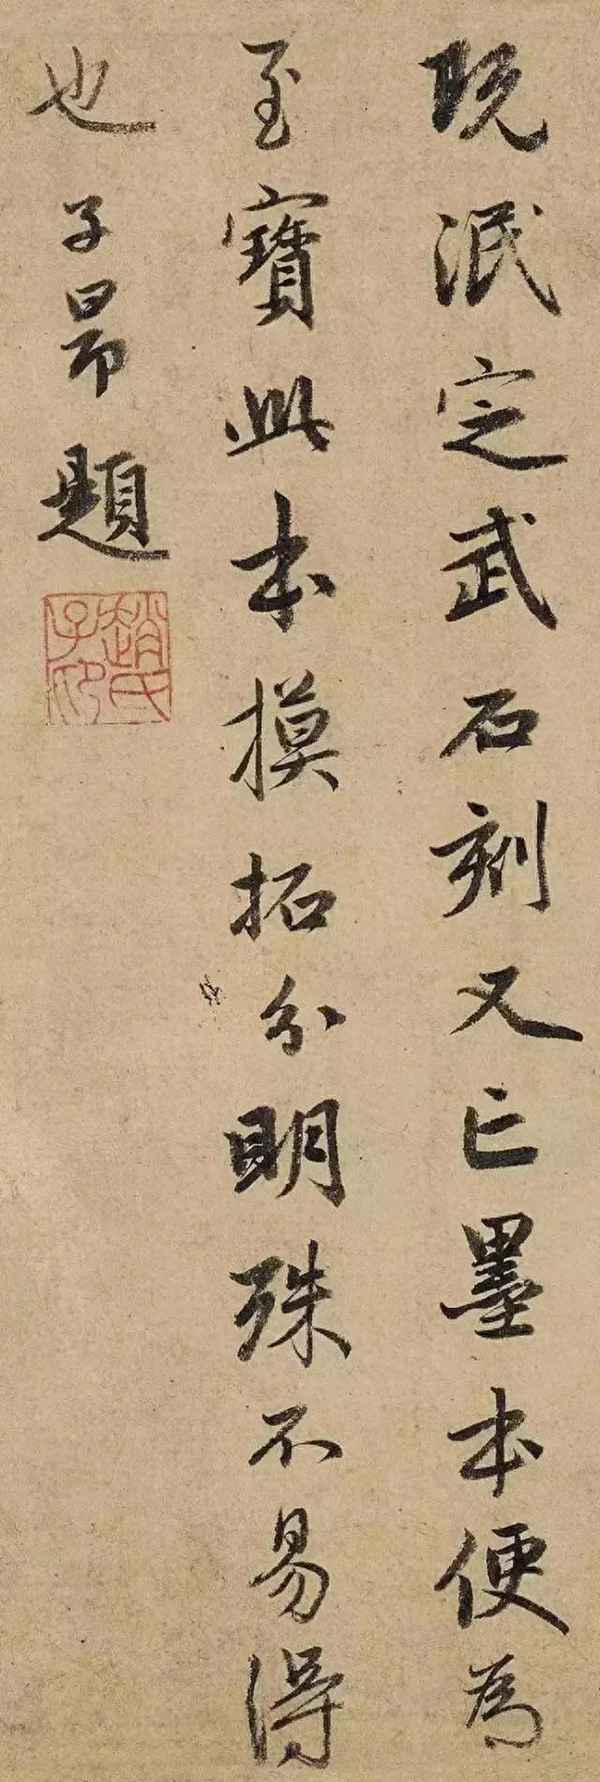 既泯定武石刻又亡墨本便為
至寶此本摸拓分明殊不易得
也子昂題
趙氏子昂